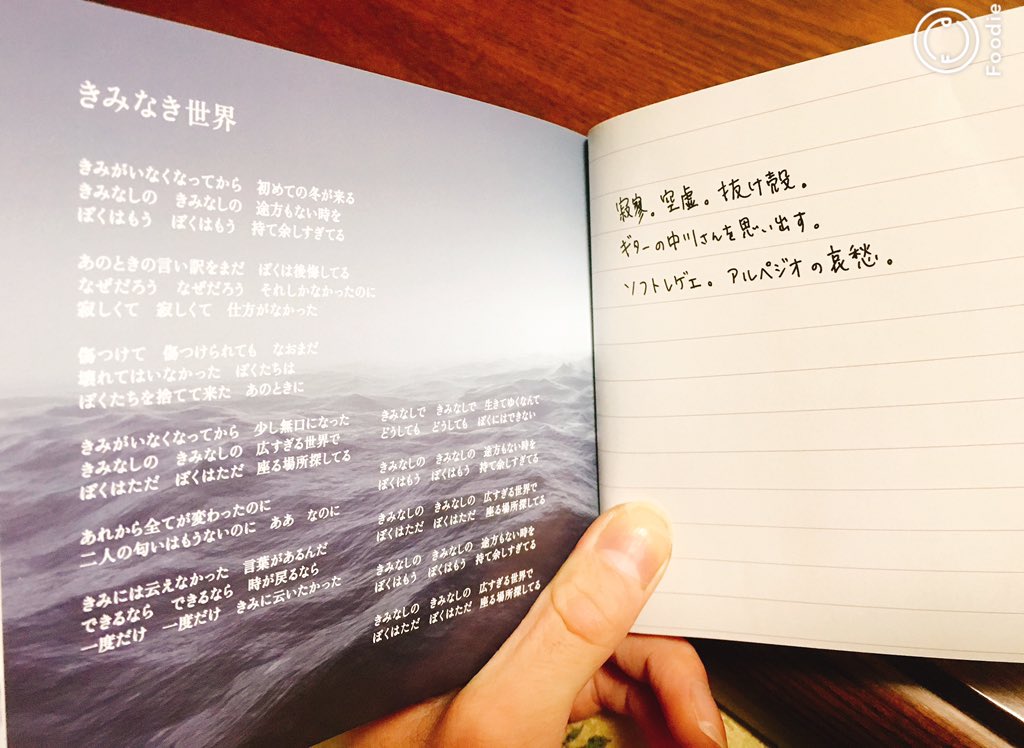 きみなき世界
きみがいなくなってから 初めての冬が来る
きみなしの きみなしの 途方もない時を
ぼくはもう ぼくはもう 持て余しすぎてる
あのときの言い訳をまだ ぼくは後悔してる
なぜだろう なぜだろう それしかなかったのに
寂しくて 寂しくて 仕方がなかった
傷つけて 傷つけられても なおまだ
壊れてはいなかった ぼくたちは
ぼくたちを捨てて来た あのときに
きみがいなくなってから 少し無口になった
きみなしの きみなしの 広すぎる世界で
ぼくはただ ぼくはただ 座る場所探してる
あれから全てが変わったのに
二人の匂いはもうないのに ああ なのに
きみには云えなかった 言葉があるんだ
できるなら できるなら 時が戻るなら
一度だけ 一度だけ きみに云いたかった
きみなしで きみなしで 生きてゆくなんて
どうしても どうしても ぼくにはできない
きみなしの きみなしの 途方もない時を
ぼくはもう ぼくはもう 持て余しすぎてる
きみなしの きみなしの 広すぎる世界で
ぼくはただ ぼくはただ 座る場所探してる
きみなしの きみなしの 途方もない時を
ぼくはもう ぼくはもう 持て余しすぎてる
きみなしの きみなしの 広すぎる世界で
ぼくはただ ぼくはただ 座る場所探してる
寂寥。空虚。抜け殻。
ギターの中川さんを思い出す。
ソフトレゲエ。アルペジオの哀愁。
Foodie